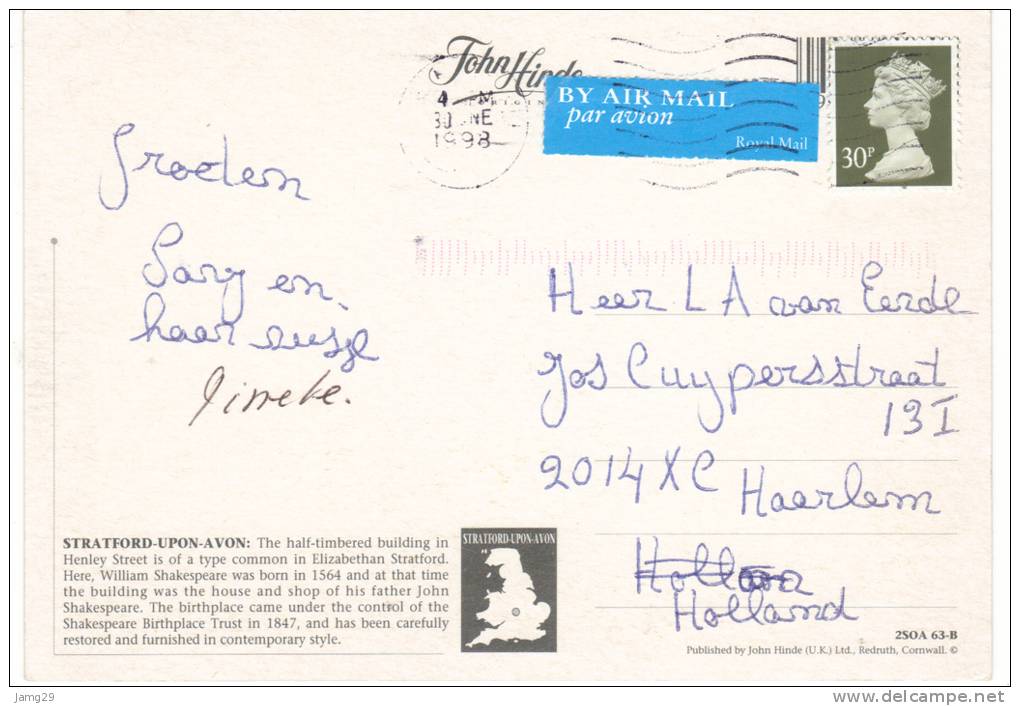 John Hinde
ORIGIN
4 M
30 NE
1998
BY AIR MAIL
par avion
Royal Mail
30P
Groeten
Sary en
haar zusje
Tineke.
Heer L A van Eerde
Jos Cuypersstraat
13 I
2014 XC Haarlem
Holland
STRATFORD-UPON-AVON: The half-timbered building in
Henley Street is of a type common in Elizabethan Stratford.
Here, William Shakespeare was born in 1564 and at that time
the building was the house and shop of his father John
Shakespeare. The birthplace came under the control of the
Shakespeare Birthplace Trust in 1847, and has been carefully
restored and furnished in contemporary style.
STRATFORD-UPON-AVON
2SOA 63-B
Published by John Hinde (U.K.) Ltd., Redruth, Cornwall. ©
Jamg29
Sello postal delcampe.net